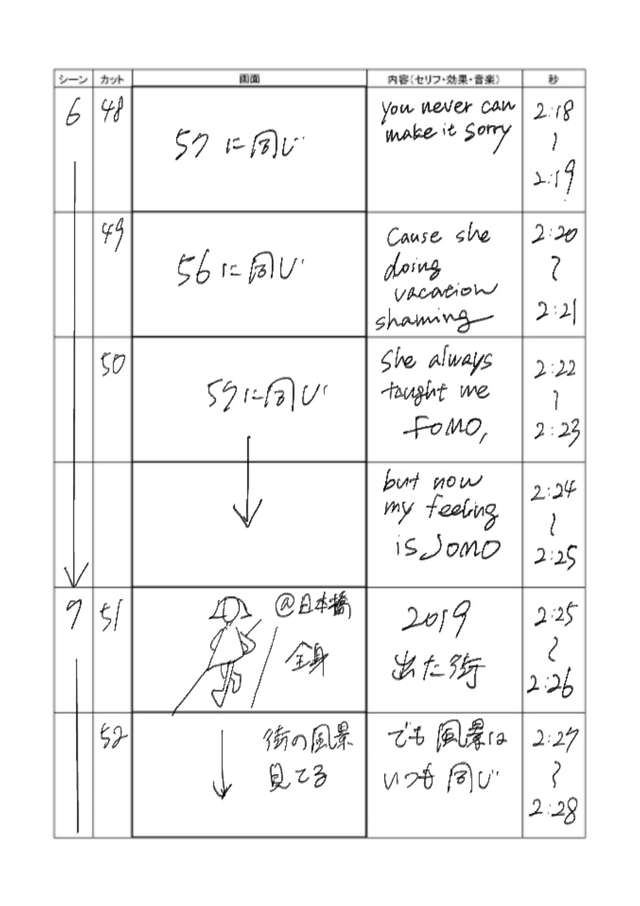 シーン カット 画面 内容(セリフ・効果・音楽) 秒
6 48 57に同じ you never can 2:18
make it sorry 〜
2:19
49 56に同じ Cause she 2:20
doing 〜
vacation
shaming 2:21
50 57に同じ she always 2:22
taught me 〜
FOMO, 2:23
but now 2:24
my feeling 〜
is JOMO 2:25
7 51 @日本橋 2019 2:25
全身 出た街 〜
2:26
52 街の風景 でも風景は 2:27
見てる いつも同じ 〜
2:28